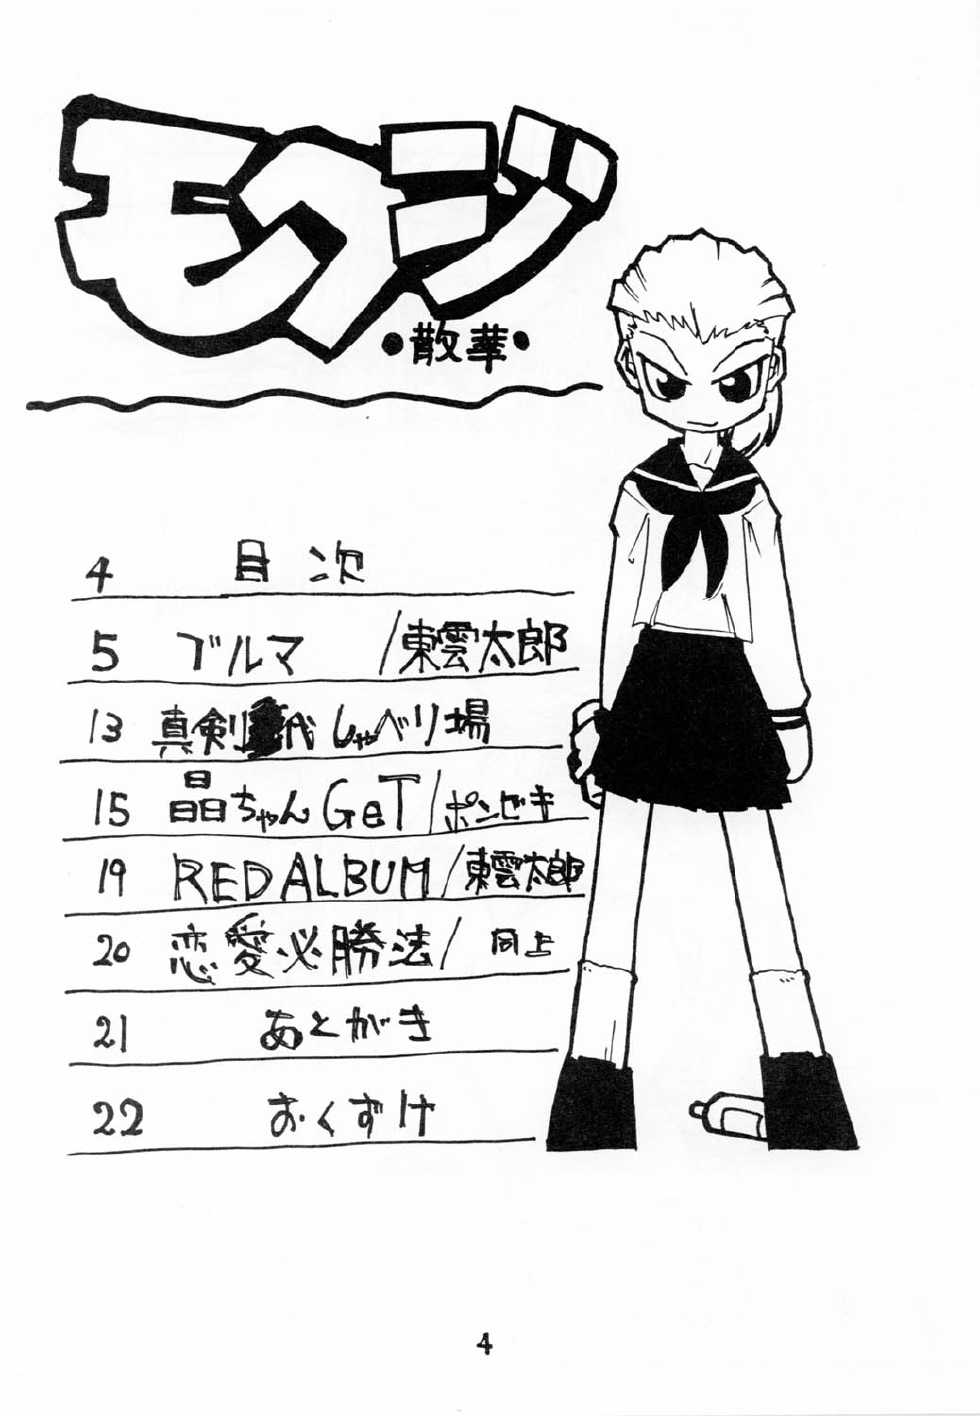 モクジ
・散華・
4 目次
5 ブルマ /東雲太郎
13 真剣代しゃべり場
15 晶ちゃんGeT/ポンビキ
19 RED ALBUM/東雲太郎
20 恋愛必勝法/同上
21 あとがき
22 おくずけ
4